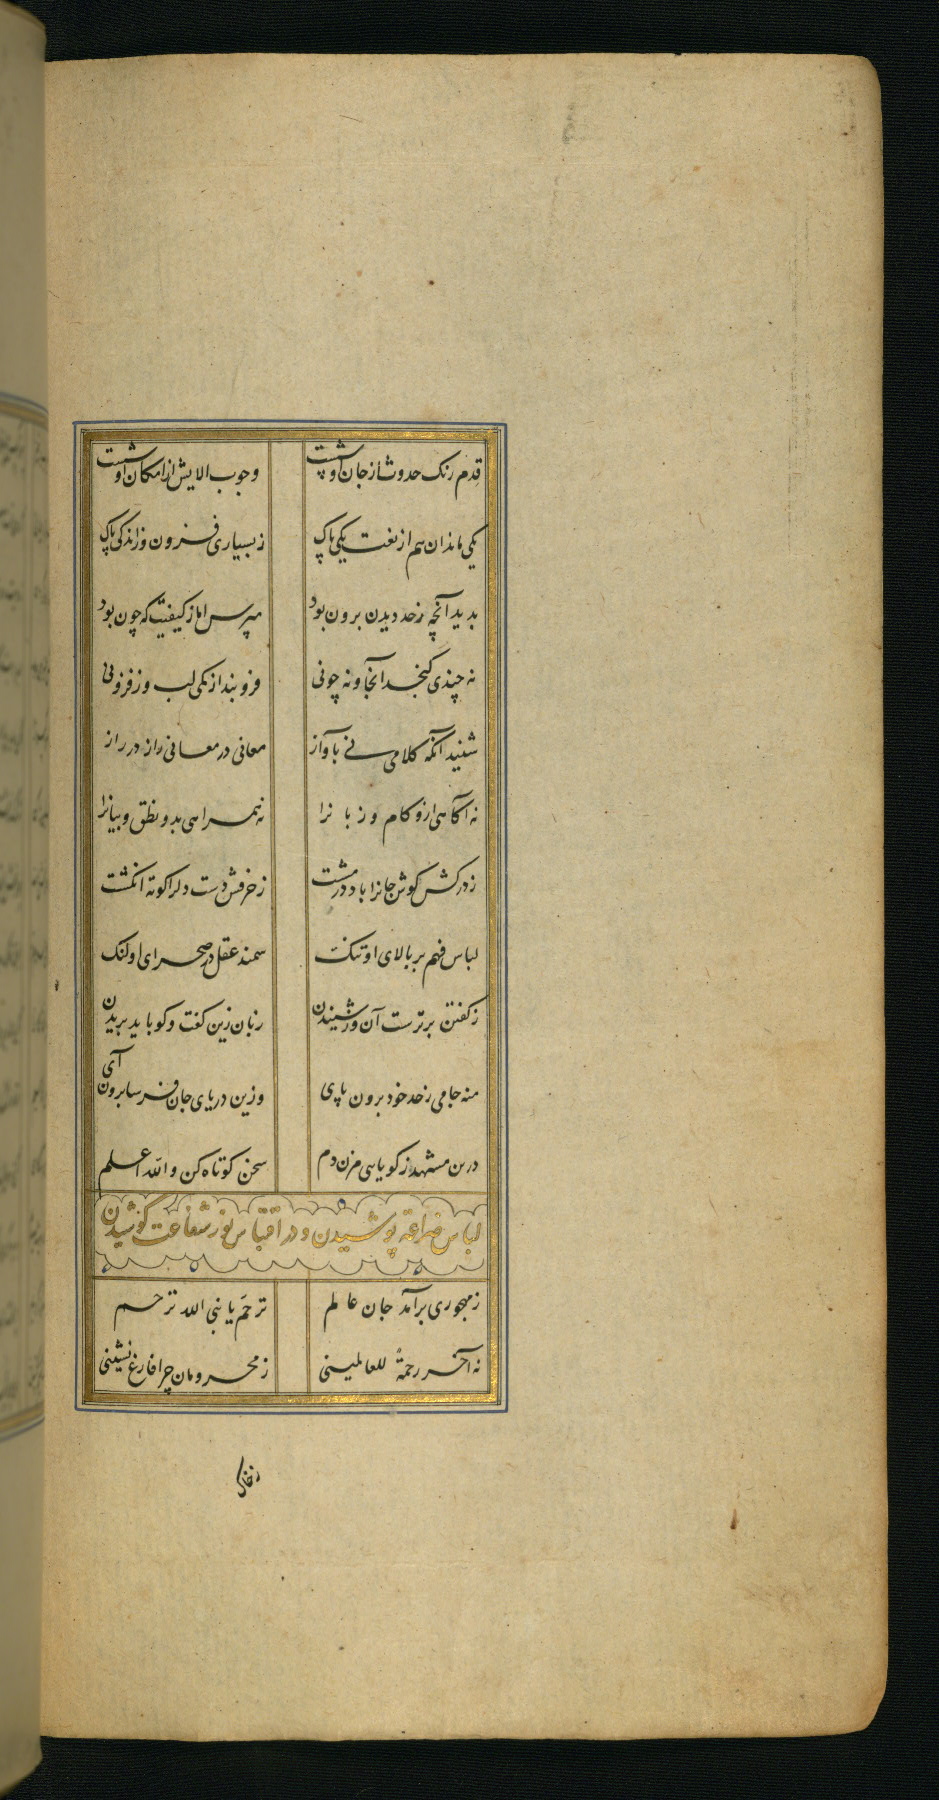 قدم رنک حدوث از جان او شست وجوب الایش از امکان او شست
یکی ماند آن هم از نعت یکی پاک ز بسیاری فزون وز اندکی پاک
بدید آنچه ز حد دیدن برون بود مپرس اما ز کیفیت که چون بود
نه چندی کنجد آنجا و نه چونی فرو بند از کمی لب وز فزونی
شنید آنکه کلامی نی باواز معانی در معانی راز در راز
نه آکاهی ازو کام و زبانرا نه همراهی بدو نطق و بیانرا
ز درکش کوش جانرا باد در مشت ز حرفش دست دلرا کوته انکشت
لباس فهم بر بالای او تنک سمند عقل در صحرای او لنک
ز کفتن برترست آن وز شنیدن زبان زین کفت و کو باید بریدن
منه جامی ز حد خود برون پای وزین دریای جان فرسا برون آی
درین مشهد ز کویایی مزن دم سخن کوتاه کن والله اعلم
لباس ضراعة پوشیدن و در اقتباس نور شفاعت کوشیدن
ز مهجوری برآمد جان عالم ترحم یا نبی الله ترحم
نه آخر رحمة للعالمینی ز محرومان چرا فارغ نشینی
ز خاک